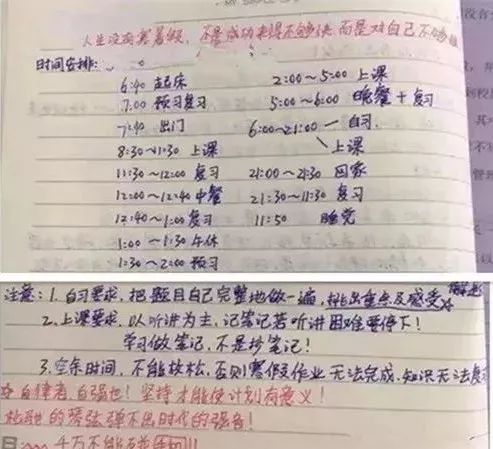 人生没有寒暑假，不是成功来得不够快，而是对自己不够狠
时间安排：
6:40 起床
7:00 预习复习
7:40 出门
8:30～11:30 上课
11:30～12:00 复习
12:00～12:40 中餐
12:40～1:00 复习
1:00～1:30 午休
1:30～2:00 预习
2:00～5:00 上课
5:00～6:00 晚餐+复习
6:00～21:00 自习
上课
21:00～21:30 回家
21:30～11:30 复习
11:50 睡觉
注意：1. 自习要求，把题目自己完整地做一遍，挑出重点及感受
2. 上课要求，以听讲为主，记笔记若听讲困难要停下！
学习做笔记，不是抄笔记！
3. 空余时间，不能放松，否则寒假作业无法完成，知识无法复
☆自律者，自强也！坚持才能使计划有意义！
松弛的琴弦弹不出时代的强音！
千万不能玩手机!!